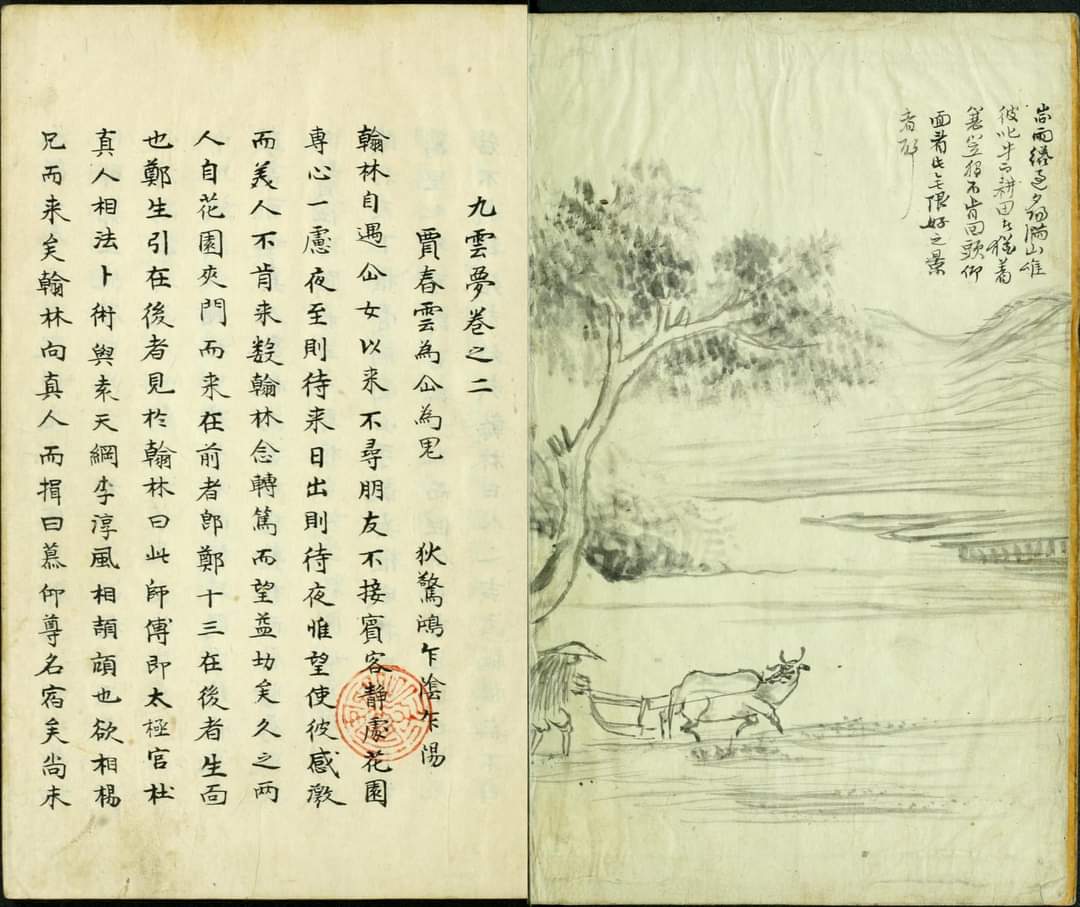 雨纔過夕陽滿山
彼此牛而耕田者猶着
蓑笠不肯回頭仰
面看此無限好之景
者耶
九雲夢卷之二
賈春雲為仚為鬼 狄驚鴻乍陰乍陽
翰林自遇仚女以来不尋朋友不接賓客静處花園
専心一慮夜至則待来日出則待夜惟望使彼感激
而美人不肯来数翰林念轉篤而望益切矣久之两
人自花園夾門而来在前者即鄭十三在後者生面
也鄭生引在後者見於翰林曰此師傅即太極官杜
真人相法卜術與袁天綱李淳風相頡頏也欲相楊
兄而来矣翰林向真人而揖曰慕仰尊名宿矣尚未